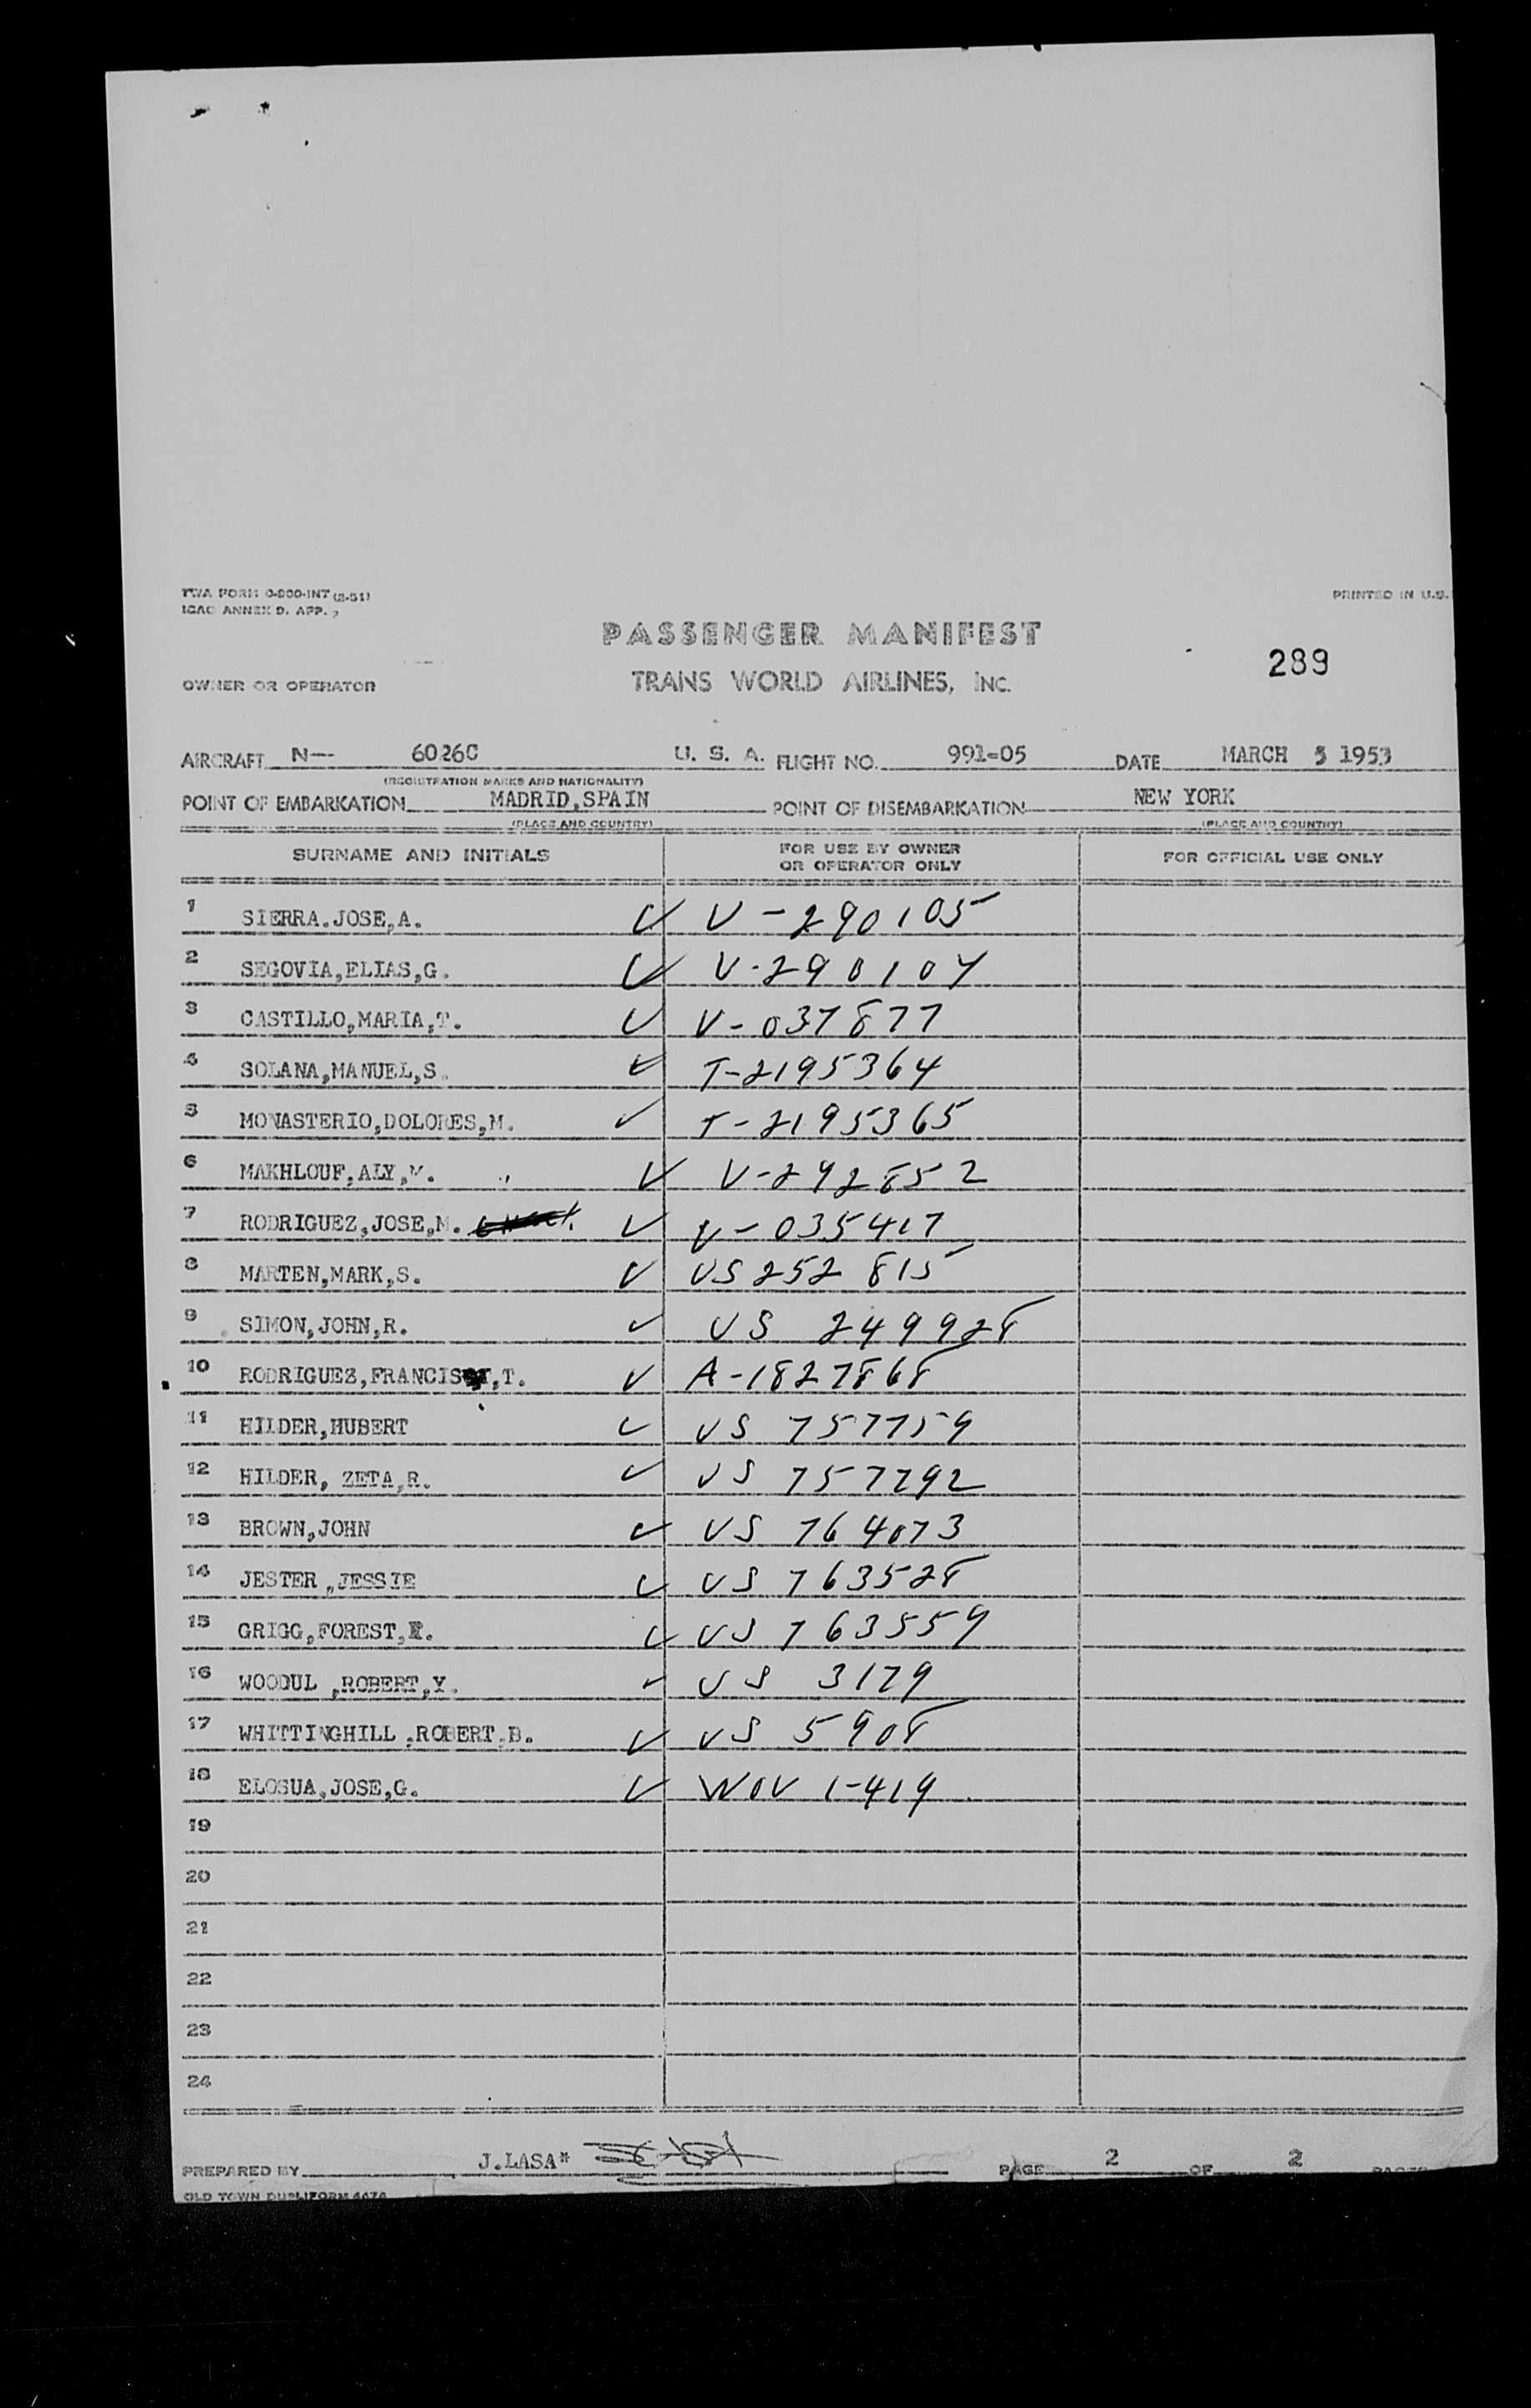 TWA FORM O-800-INT (2-51)
ICAO ANNEX 9. APP. 2
PRINTED IN U.S.
PASSENGER MANIFEST
289
OWNER OR OPERATOR TRANS WORLD AIRLINES, INC.
AIRCRAFT N— 6026C U. S. A. FLIGHT NO. 991-05 DATE MARCH 5 1953
(REGISTRATION MARKS AND NATIONALITY)
POINT OF EMBARKATION MADRID,SPAIN POINT OF DISEMBARKATION NEW YORK
(PLACE AND COUNTRY) (PLACE AND COUNTRY)
SURNAME AND INITIALS FOR USE BY OWNER OR OPERATOR ONLY FOR OFFICIAL USE ONLY
1 SIERRA.JOSE,A. ✓ V-290105
2 SEGOVIA,ELIAS,G. ✓ V-290104
3 CASTILLO,MARIA,T. ✓ V-037877
4 SOLANA,MANUEL,S. ✓ T-2195364
5 MONASTERIO,DOLORES,M. ✓ T-2195365
6 MAKHLOUF,ALY,M. ✓ V-292852
7 RODRIGUEZ,JOSE,M. ✓ V-035417
8 MARTEN,MARK,S. ✓ US 252815
9 SIMON,JOHN,R. ✓ US 249928
10 RODRIGUEZ, ✓ A-1827868
11 HILDER,HUBERT ✓ US 757759
12 HILDER, ZETA,R. ✓ US 757792
13 BROWN,JOHN ✓ US 764073
14 JESTER,JESSIE ✓ US 763528
15 GRIGG,FOREST, ✓ US 763559
16 WOODUL ,ROBERT,Y. ✓ US 3179
17 WHITTINGHILL,ROBERT,B. ✓ US 5908
18 ELOSUA,JOSE,G. ✓ WOV 1-419
19
20
21
22
23
24
PREPARED BY J.LASA* PAGE 2 OF 2 PAGES
OLD TOWN DUPLIFORM